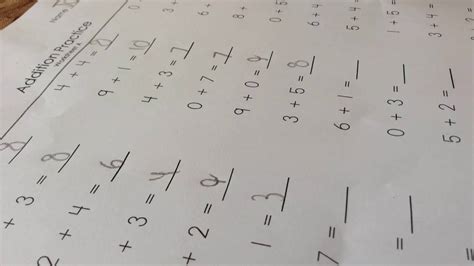 Name
Addition Practice
Worksheet A
4 + 4 = 8
9 + 1 = 10
4 + 3 = 7
0 + 7 = 7
9 + 0 = 9
3 + 5 = 8
6 + 1 =
0 + 3 =
5 + 2 =
8
+ 3 = 8
2 + 4 = 6
+ 3 = 4
+ 2 = 9
1 = 3
7 =
=
=
3 +
6 +
9 + 8
0 + 5
6 + 4
5 +
1 + 5 =
3 + 4 =